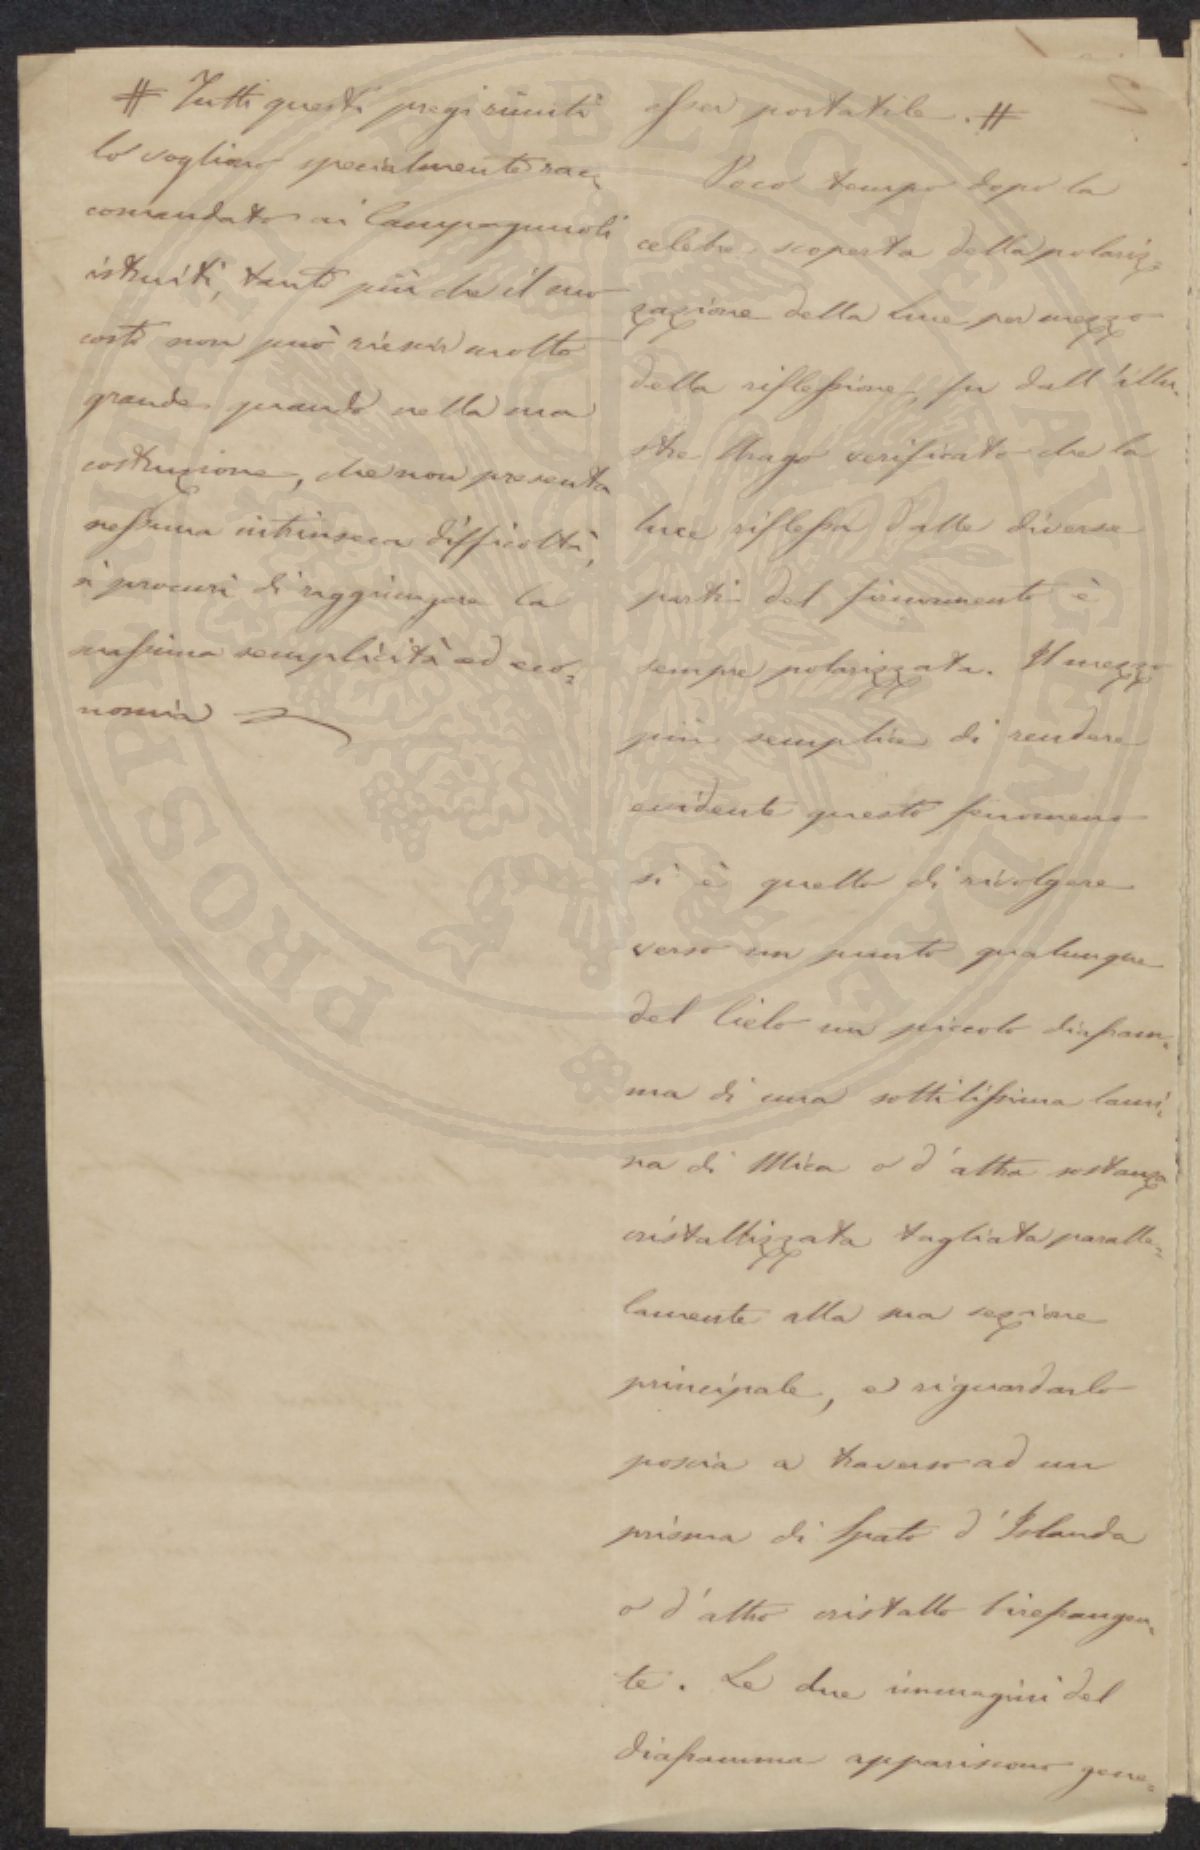 # Tutti questi pregi riuniti
lo vogliono specialmente rac=
comandato ai Campagnuoli
istruiti, tanto più che il suo
costo non può riescir molto
grande quando nella sua
costruzione, che non presenta
nessuna intrinseca difficoltà,
si procuri di raggiungere la
massima semplicità ed eco=
nomia
esser portatile. #
Poco tempo dopo la
celebre scoperta della polariz=
zazione della luce per mezzo
della riflessione, fu dall'illu=
stre Arago verificato che la
luce riflessa dalle diverse
parti del firmamento è
sempre polarizzata. Il mezzo
più semplice di rendere
evidente questo fenomeno
si è quello di rivolgere
verso un punto qualunque
del Cielo un piccolo diafram=
ma di una sottilissima lami=
na di Mica o d'altra sostanza
cristallizzata tagliata paralle=
lamente alla sua sezione
principale, e riguardarlo
poscia a traverso ad un
prisma di Spato d'Islanda
o d'altro cristallo birefrangen=
te. Le due immagini del
diaframma appariscono gene=
PROSPERITATI PUBLICAE AUGENDAE